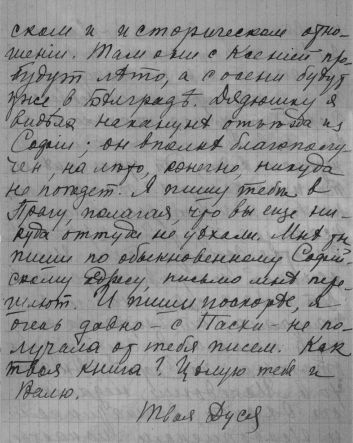 ском и историческом отно-
шении. Там они с Ксенией про-
будут лѣто, а с осени будут
уже в Бѣлградѣ. Дядюшку я
видѣла наканунѣ отъѣзда из
Софии; он вполнѣ благополу-
чен, на лѣто, конечно, никуда
не поѣдет. Я пишу тебѣ в
Прагу, полагая, что вы еще ни-
куда оттуда не уѣхали. Мнѣ
пиши по обыкновенному Софий-
скому адресу, письмо мнѣ пере-
шлют. И пиши поскорѣе, я
очень давно – с Пасхи – не по-
лучала от тебя писем. Как
твоя книга? Цѣлую тебя и
Валю.
Твоя Дуся